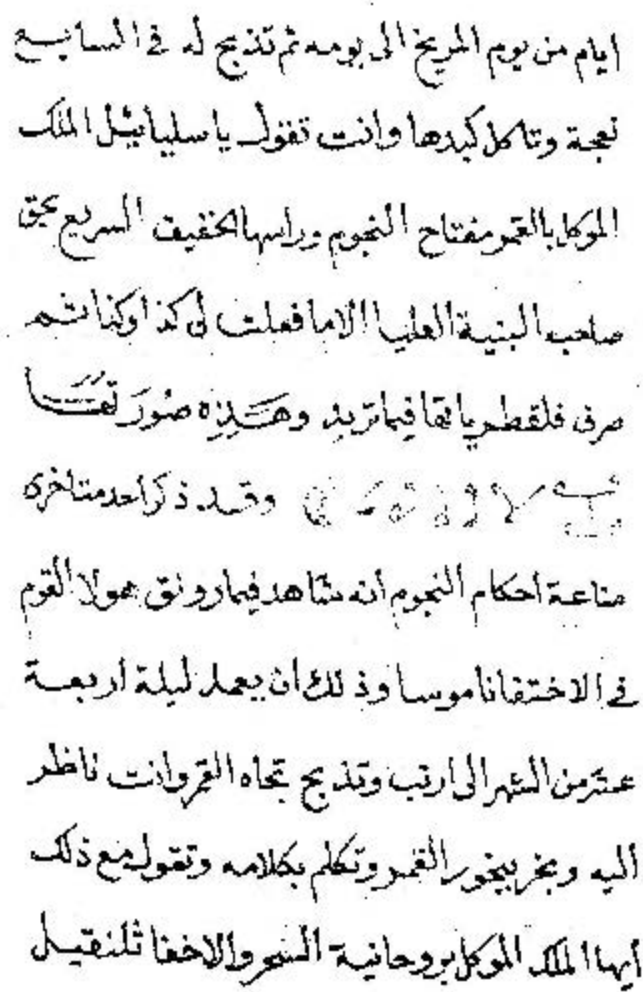 ايام من يوم المريخ الى يومه ثم تذبح له في السابع
نعجة وتاكل كبدها وانت تقول يا سلياييل الملك
الموكل بالقمر مفتاح النجوم وراسها الخفيف السريع بحق
صاحب البنية العليا الا ما فعلت لى كذا وكذا ثم
فيما تريد وهَذِه صُورَتهَا
وقد ذكر احد متاخرى
صناعة احكام النجوم انه شاهد فيما رونق هولا القوم
في الاختفا ناموسا وذلك ان يعمد ليلة اربعة
عشر من الشهر الى ارنب وتذبح تجاه القمر وانت ناظر
اليه وبخر ببخور القمر وتكلم بكلامه وتقول مع ذلك
ايها الملك الموكل بروحانية السحر والاخفا